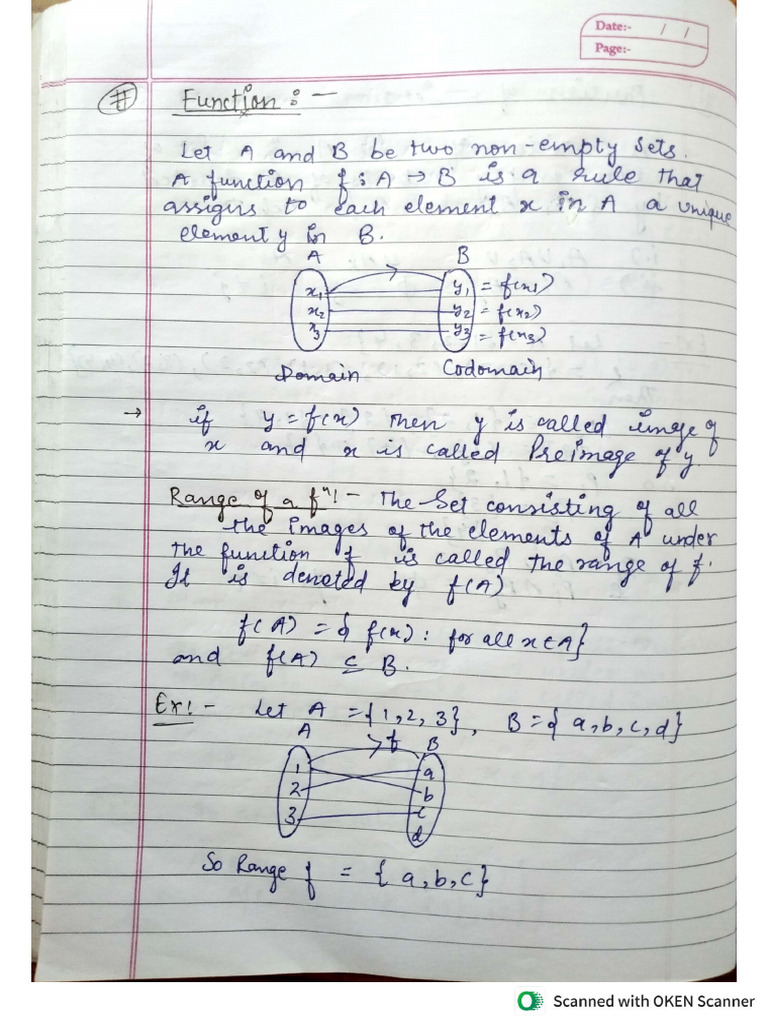 Date:- / /
Page:-
# Function :-
Let A and B be two non-empty sets.
A function f : A → B is a rule that
assigns to each element x in A a unique
element y in B.
A B
x1 y1 = f(x1)
x2 y2 = f(x2)
x3 y3 = f(x3)
Domain Codomain
→ if y = f(x) then y is called image of
x and x is called Preimage of y.
Range of a fⁿ!- The Set consisting of all
the images of the elements of A under
the function f is called the range of f.
It is denoted by f(A)
f(A) = { f(x) : for all x ∈ A}
and f(A) ⊆ B.
Ex!- Let A = {1, 2, 3}, B = { a, b, c, d}
A f B
1 a
2 b
3 c
d
So Range f = { a, b, c}
Scanned with OKEN Scanner